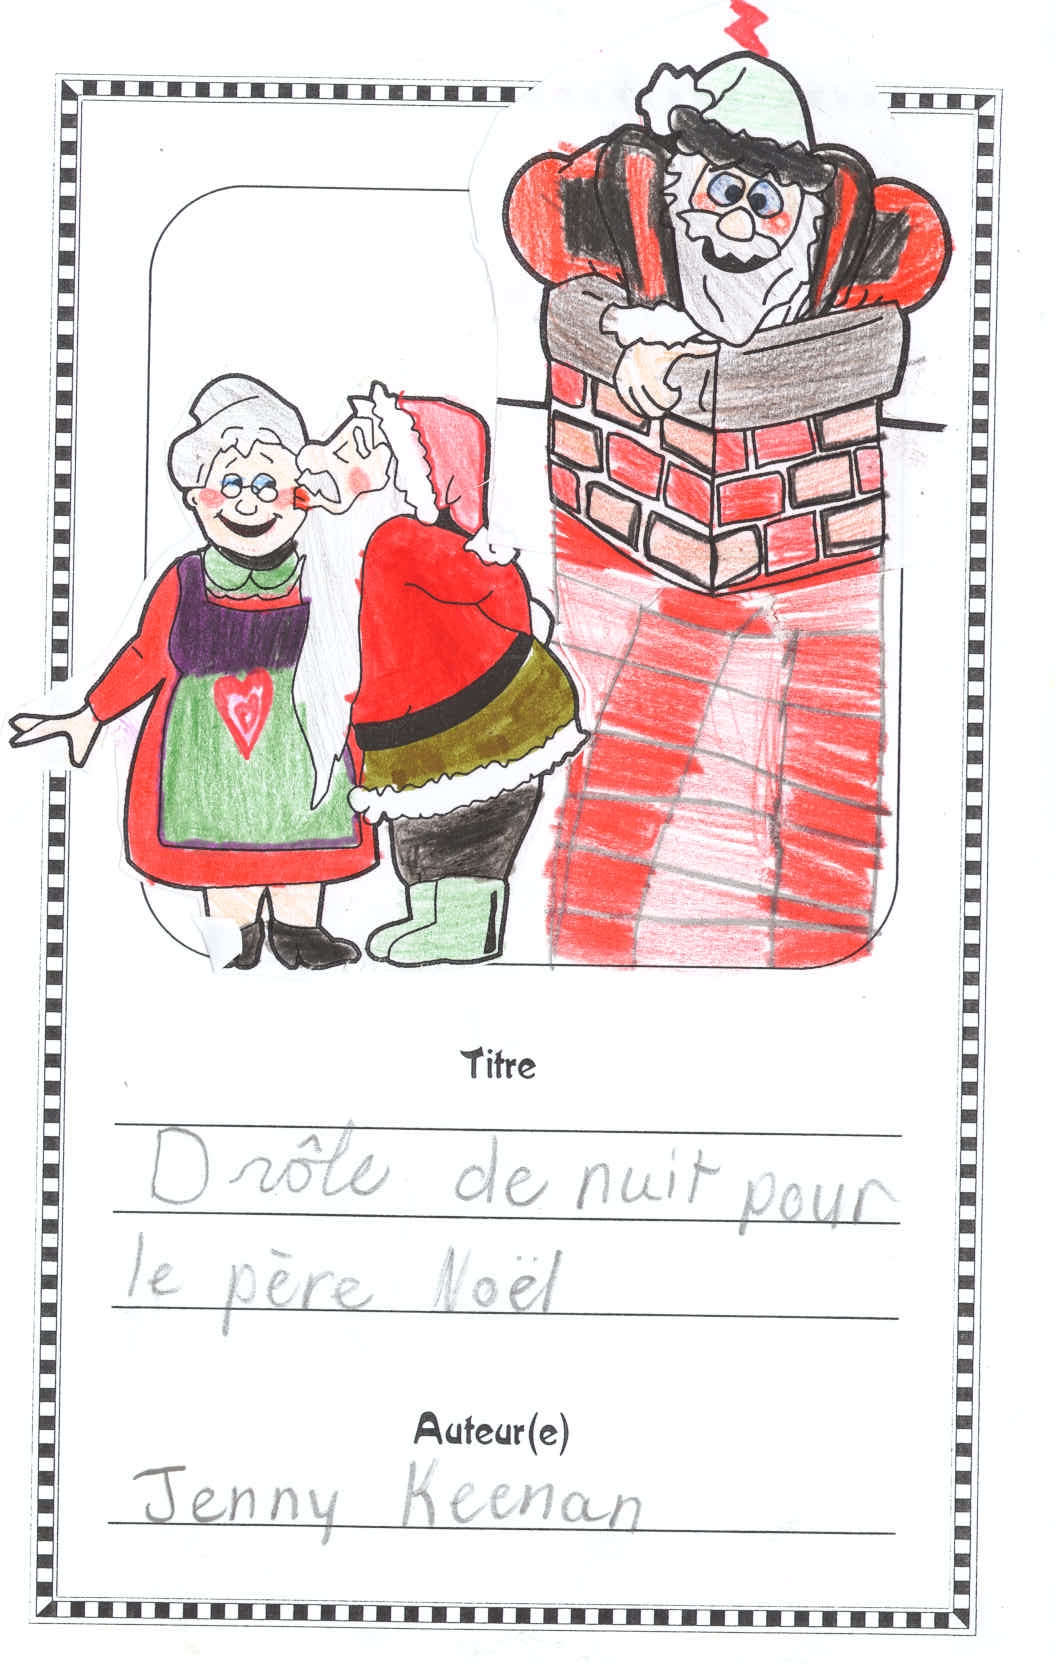 Titre
Drôle de nuit pour
le père Noël
Auteur(e)
Jenny Keenan